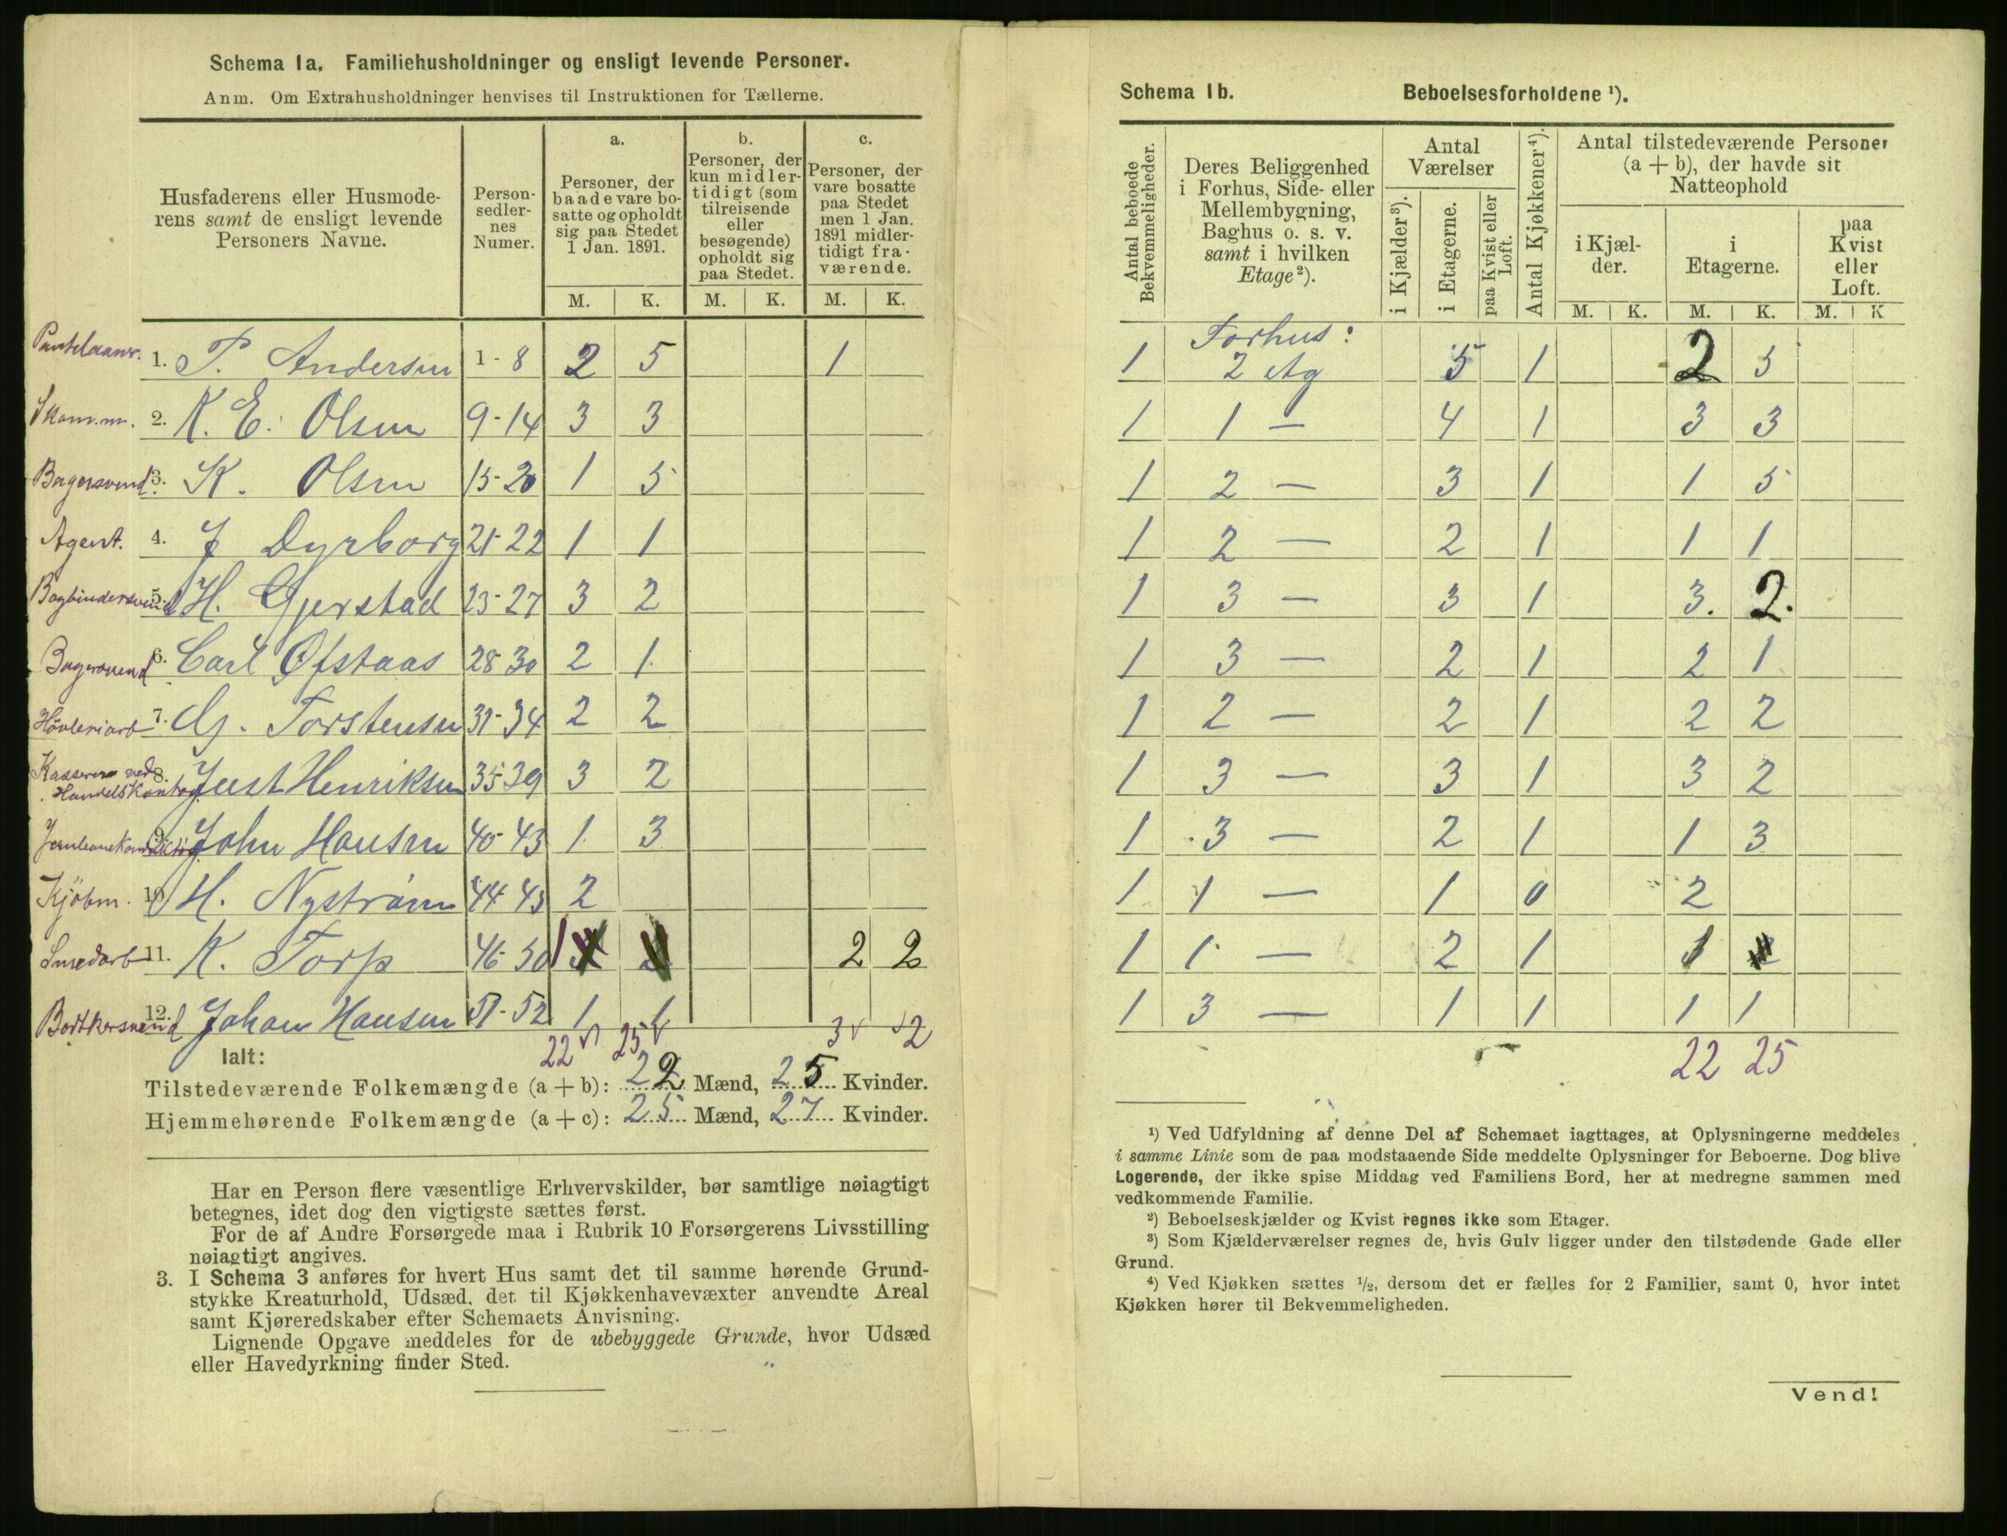 Schema 1a. Familiehusholdninger og ensligt levende Personer.
Anm. Om Extrahusholdninger henvises til Instruktionen for Tællerne.
Husfaderens eller Husmoderens samt de ensligt levende Personers Navne.
Personsedlernes Numer.
a. Personer, der baade vare bosatte og opholdt sig paa Stedet 1 Jan. 1891.
b. Personer, der kun midlertidigt (som tilreisende eller besøgende) opholdt sig paa Stedet.
c. Personer, der vare bosatte paa Stedet men 1 Jan. 1891 midlertidigt fraværende.
M. K. M. K. M. K.
1. P. Andersen 1-8 2 5 1
Skom.m. 2. K. E. Olsen 9-14 3 3
Bagersvend 3. K. Olsen 15-20 1 5
Agent. 4. J Dyrborg 21-22 1 1
Bogbindersvend 5. H. Gjerstad 23-27 3 2
Bagersvend 6. Carl Ofstaas 28-30 2 1
Høvleriarb 7. G. Torstensen 31-34 2 2
Kasserer ved Handelskontor 8. Just Henriksen 35-39 3 2
Jernbanekonduktør 9. John Hansen 40-43 1 3
Kjøbm. 10. H. Nystrøm 44-45 2
Smedarb 11. K. Torp 46-50 1 2 2
Bødtkersvend 12. Johan Hansen 51-52 1 1
22 25 3 2
Ialt:
Tilstedeværende Folkemængde (a + b): 22 Mænd, 25 Kvinder.
Hjemmehørende Folkemængde (a + c): 25 Mænd, 27 Kvinder.
Har en Person flere væsentlige Erhvervskilder, bør samtlige nøiagtigt
betegnes, idet dog den vigtigste sættes først.
For de af Andre Forsørgede maa i Rubrik 10 Forsørgerens Livsstilling
nøiagtigt angives.
3. I Schema 3 anføres for hvert Hus samt det til samme hørende Grund-
stykke Kreaturhold, Udsæd, det til Kjøkkenhavevæxter anvendte Areal
samt Kjøreredskaber efter Schemaets Anvisning.
Lignende Opgave meddeles for de ubebyggede Grunde, hvor Udsæd
eller Havedyrkning finder Sted.
Schema 1b. Beboelsesforholdene ¹).
Antal beboede Bekvemmeligheder.
Deres Beliggenhed i Forhus, Side- eller Mellembygning, Baghus o. s. v. samt i hvilken Etage ²).
Antal Værelser
i Kjælder ³).
i Etagerne.
paa Kvist eller Loft.
Antal Kjøkkener ⁴).
Antal tilstedeværende Personer (a + b), der havde sit Natteophold
i Kjælder.
i Etagerne.
paa Kvist eller Loft.
M. K. M. K. M. K
Forhus:
1 2 Etg 5 1 2 5
1 1 — 4 1 3 3
1 2 — 3 1 1 5
1 2 — 2 1 1 1
1 3 — 3 1 3. 2.
1 3 — 2 1 2 1
1 2 — 2 1 2 2
1 3 — 3 1 3 2
1 3 — 2 1 1 3
1 1 — 1 0 2
1 1 — 2 1 1
1 3 — 1 1 1 1
22 25
¹) Ved Udfyldning af denne Del af Schemaet iagttages, at Oplysningerne meddeles
i samme Linie som de paa modstaaende Side meddelte Oplysninger for Beboerne. Dog blive
Logerende, der ikke spise Middag ved Familiens Bord, her at medregne sammen med
vedkommende Familie.
²) Beboelseskjælder og Kvist regnes ikke som Etager.
³) Som Kjælderværelser regnes de, hvis Gulv ligger under den tilstødende Gade eller
Grund.
⁴) Ved Kjøkken sættes ½, dersom det er fælles for 2 Familier, samt 0, hvor intet
Kjøkken hører til Bekvemmeligheden.
Vend!